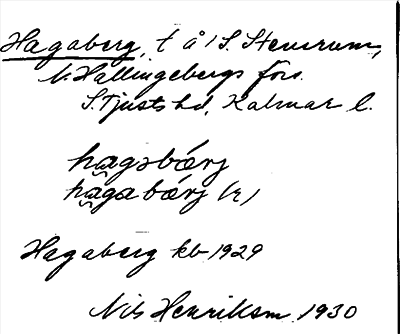 Hagaberg, t å 1 S. Stensrum,
N. Hallingebergs förs.
S. Tjusts hd, Kalmar l.
hagəbærj
hagabærj (r)
Hagaberg kb 1929
Nils Henrikson 1930